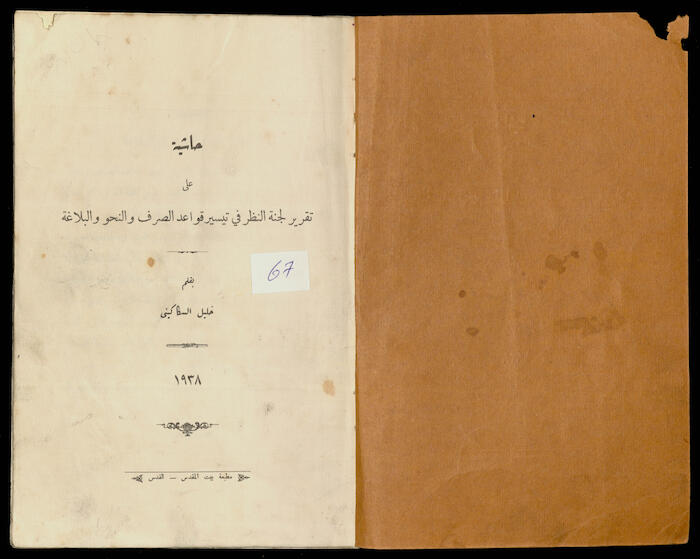 حاشية
على
تقرير لجنة النظر في تيسير قواعد الصرف والنحو والبلاغة
67
بقلم
خليل السكاكيني
١٩٣٨
مطبعة بيت المقدس – القدس